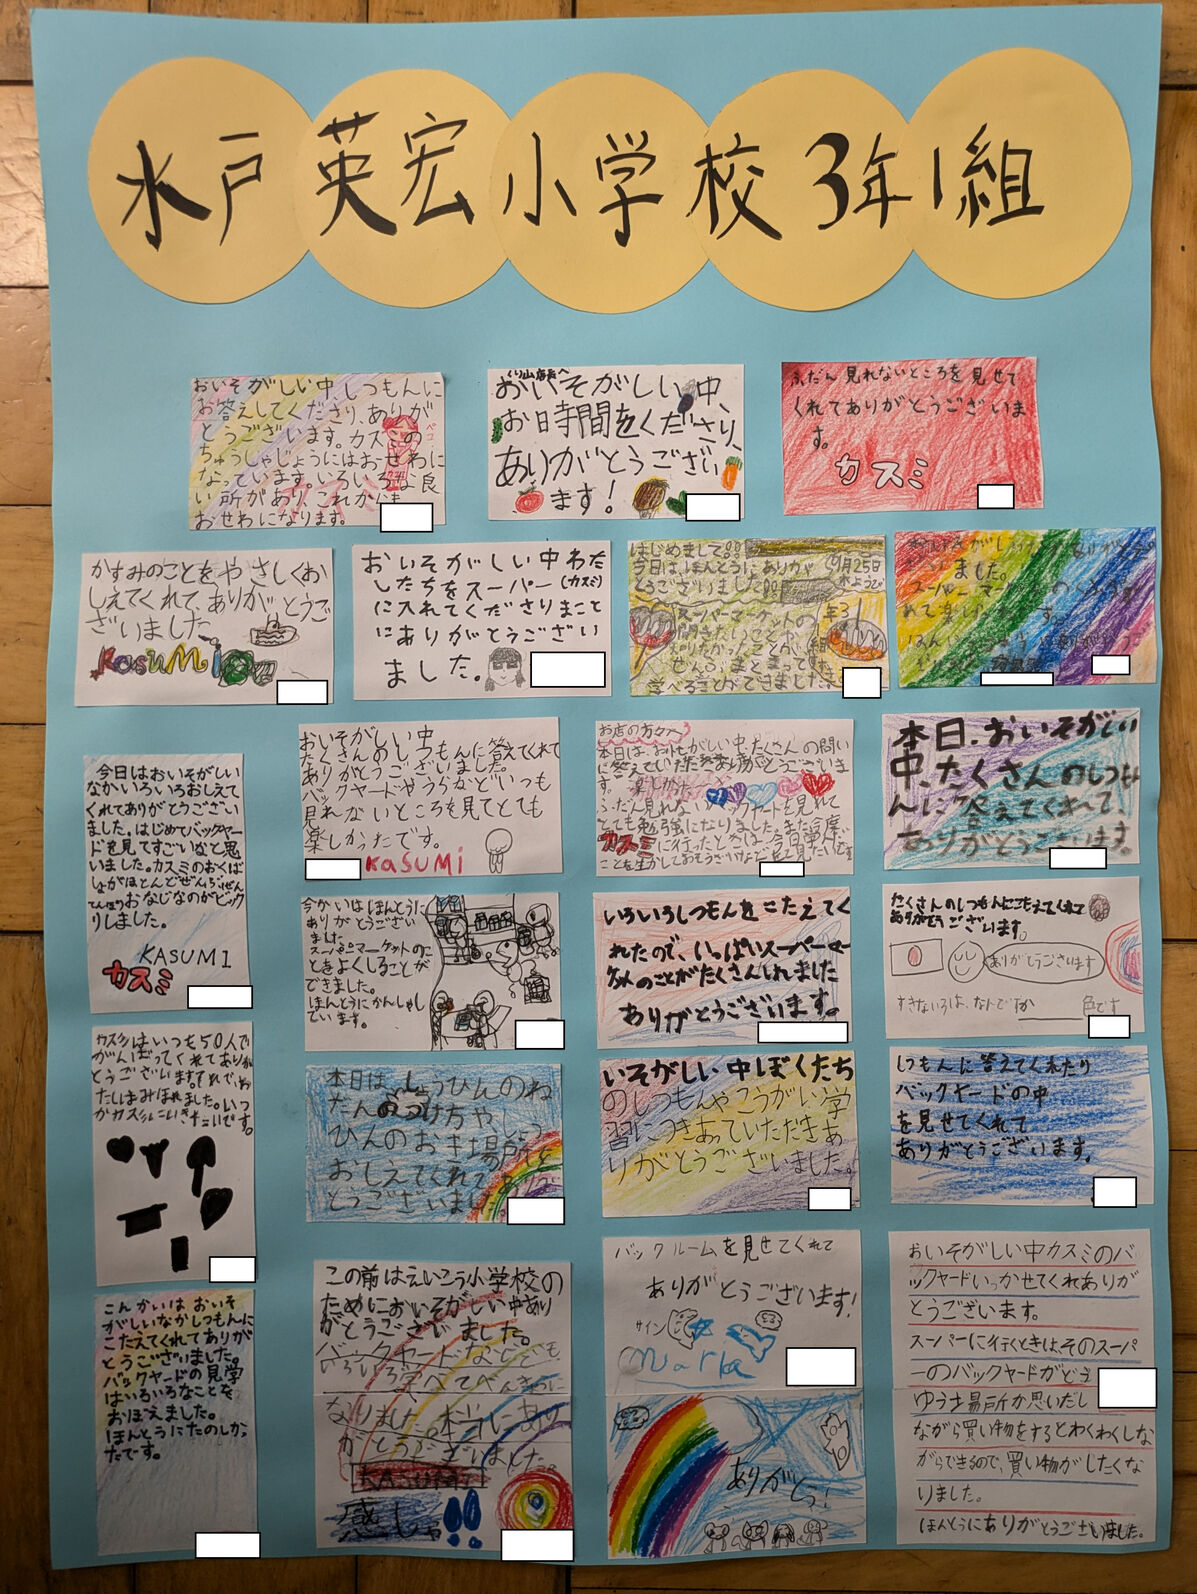 水戸英宏小学校3年1組
おいそがしい中、しつもんに
お答えしてくださり、ありが
とうございます。カスミの
ちゅうしゃじょうにはおせわに
なっています。いろいろな良
い所があり、これからも
おせわになります。
くり山店長へ
おいそがしい中、
お時間をくださり、
ありがとうござい
ます!
ふだん見れないところを見せて
くれてありがとうございま
す。
カスミ
かすみのことをやさしくお
しえてくれて、ありがとうご
ざいました
KasuMi
おいそがしい中わた
したちをスーパー(カスミ)
に入れてくださりまこと
にありがとうござい
ました。
はじめまして!!
今日はほんとうにありが
とうございました!!
9月25日
スーパーマーケットの
聞きたいことや
しりたかったことが
ぜんぶまとまってて
学べることができました
ました。
スーパーマー
今日はおいそがしい
なかいろいろおしえて
くれてありがとうござい
ました。はじめてバックヤー
ドを見てすごいなと思
いました。カスミのおくば
しょがほとんどぜんぶぜん
てんぽおなじなのがビック
りしました。
KASUMI
カスミ
おいそがしい中
たくさんのしつもんに答えてくれて
ありがとうございました。
バックヤードやうらなどいつも
見れないところを見てとても
楽しかったです。
KASUMI
お店の方々へ
本日は、おいそがしい中、たくさんの問い
に答えていただきありがとうございま
す。
ふだん見れないバックヤードを見れて
とても勉強になりました。また今度
カスミに行ったときは、今日見た
本日、おいそがしい
中、たくさんのしつも
んに答えてくれて
ありがとうございます。
今かいはほんとうに
ありがとうござい
ました
スーパーマーケットのこ
とをよくしることが
できました。
ほんとうにかんしゃし
ています。
いろいろしつもんをこたえてく
れたので、いっぱいスーパーマー
ケットのことがたくさんしれました
ありがとうございます。
たくさんのしつもんにこたえてくれて
ありがとうございます。
ありがとうございます
すきないろは、なんですか
色です
カスミはいつも50人で
がんばってくれてありが
とうございます。それで、わ
たしはみほれました。いつ
かカスミにいきたいです。
本日はしょうひんのね
だんのつけ方や、しょう
ひんのおき場所を
おしえてくれてありが
とうございました
いそがしい中ぼくたち
のしつもんやこうがい学
習につきあっていただきあ
りがとうございました。
しつもんに答えてくれたり
バックヤードの中
を見せてくれて
ありがとうございます。
こんかいはおいそ
がしいなかしつもんに
こたえてくれてありが
とうございました。
バックヤードの見学
はいろいろなことを
おぼえました。
ほんとうにたのしかっ
たです。
この前はえいこう小学校の
ためにおいそがしい中あり
がとうございました。
バックヤードなどでも
いろいろ学べてべんきょうに
なりました。本当にあり
がとうございました。
KASUMI
感しゃ!!
バックルームを見せてくれて
ありがとうございます!
サイン
ありがとう!
おいそがしい中カスミのバ
ックヤードいっかせてくれありが
とうございます。
スーパーに行くときは、そのスーパ
ーのバックヤードがどう
ゆうき場所か思いだし
ながら買い物をするとわくわくしな
がらできるので、買い物がしたくな
りました。
ほんとうにありがとうございました。